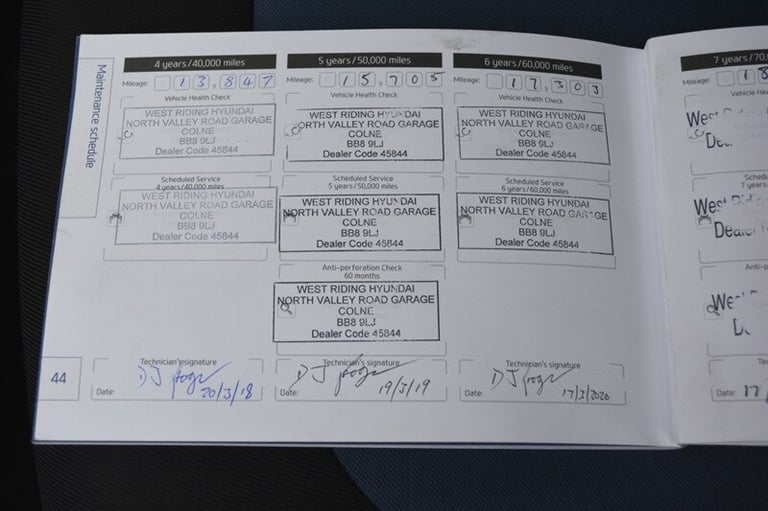 Maintenance schedule
4 years/40,000 miles
Mileage: 13,847
Vehicle Health Check
WEST RIDING HYUNDAI
NORTH VALLEY ROAD GARAGE
COLNE
BB8 9LJ
Dealer Code 45844
Scheduled Service
4 years/40,000 miles
WEST RIDING HYUNDAI
NORTH VALLEY ROAD GARAGE
COLNE
BB8 9LJ
Dealer Code 45844
Technician's signature
DJ
Date: 20/3/18
5 years/50,000 miles
Mileage: 15,705
Vehicle Health Check
WEST RIDING HYUNDAI
NORTH VALLEY ROAD GARAGE
COLNE
BB8 9LJ
Dealer Code 45844
Scheduled Service
5 years/50,000 miles
WEST RIDING HYUNDAI
NORTH VALLEY ROAD GARAGE
COLNE
BB8 9LJ
Dealer Code 45844
Anti-perforation Check
60 months
WEST RIDING HYUNDAI
NORTH VALLEY ROAD GARAGE
COLNE
BB8 9LJ
Dealer Code 45844
Technician's signature
DJ
Date: 19/3/19
6 years/60,000 miles
Mileage: 17,303
Vehicle Health Check
WEST RIDING HYUNDAI
NORTH VALLEY ROAD GARAGE
COLNE
BB8 9LJ
Dealer Code 45844
Scheduled Service
6 years/60,000 miles
WEST RIDING HYUNDAI
NORTH VALLEY ROAD GARAGE
COLNE
BB8 9LJ
Dealer Code 45844
Technician's signature
DJ
Date: 17/3/2020
44
7 years/70,
Mileage: 18
Vehicle Hea
West
Schedu
7 years
West
Dealer
Anti-p
Date: 17/